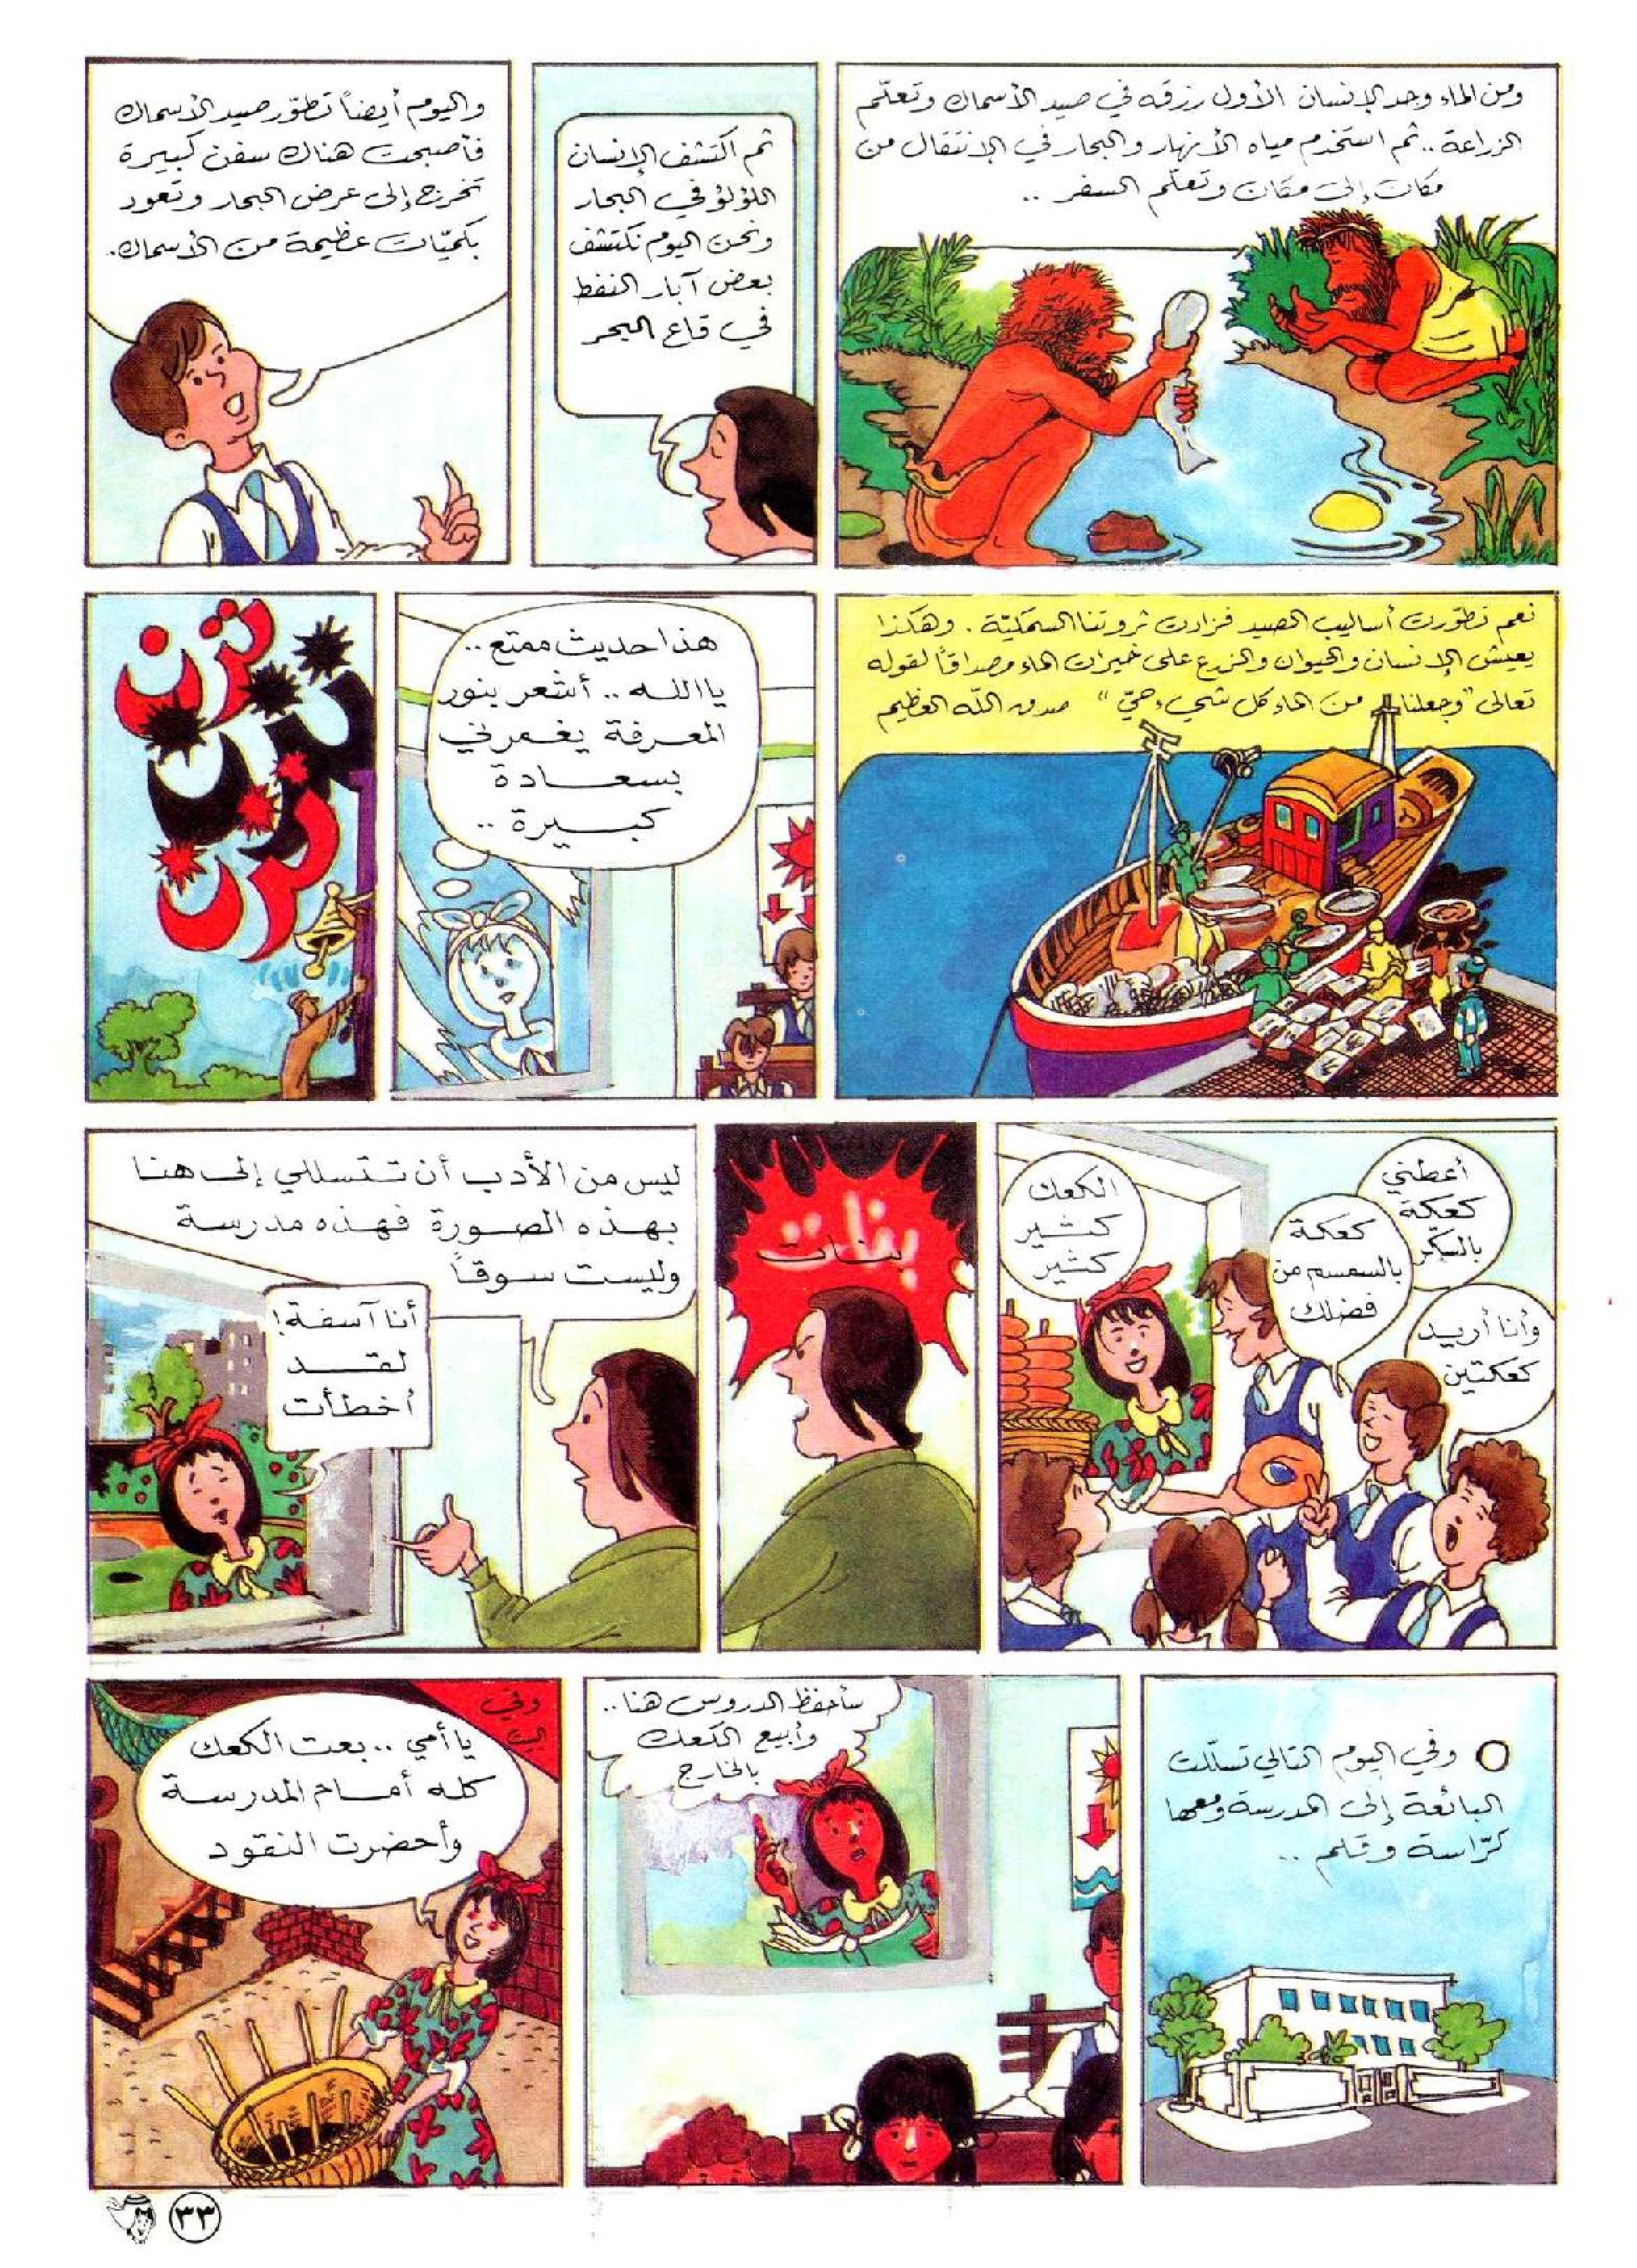 ومن الماء وجد الإنسان الأول رزقه في صيد الأسماك وتعلّم
الزراعة .. ثم استخدم مياه الأنهار والبحار في الانتقال من
مكان إلى مكان وتعلّم السفر ..
ثم اكتشف الإنسان
اللؤلؤ في البحار
ونحن اليوم نكتشف
بعض آبار النفط
في قاع البحر
واليوم أيضاً تطوّر صيد الأسماك
فأصبحت هناك سفن كبيرة
تخرج إلى عرض البحار وتعود
بكميّات عظيمة من الأسماك.
نعم تطوّرت أساليب الصيد فزادت ثروتنا السمكيّة . وهكذا
يعيش الإنسان والحيوان والزرع على خيرات الماء مصداقاً لقوله
تعالى "وجعلنا من الماء كل شيء حيّ" صدق الله العظيم
هذا حديث ممتع ..
يا الله .. أشعر بنور
المعرفة يغمرني
بسعادة
كبيرة ..
ترن
ترن
ترن
أعطني
كعكة
بالسكّر
كعكة
بالسمسم من
فضلك
وأنا أريد
كعكتين
الكعك
كثير
كثير
بنات
ليس من الأدب أن تتسللي إلى هنا
بهذه الصورة فهذه مدرسة
وليست سوقاً
أنا آسفة!
لقد
أخطأت
وفي اليوم التالي تسلّلت
البائعة إلى المدرسة ومعها
كرّاسة وقلم ..
سأحفظ الدروس هنا ..
وأبيع الكعك
بالخارج
وفي
البيت
يا أمي .. بعت الكعك
كله أمام المدرسة
وأحضرت النقود
٣٣